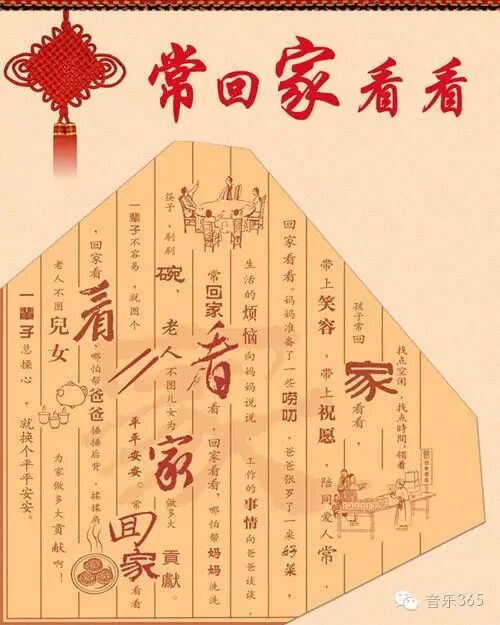 常回家看看
找点空闲，找点時間，领着
孩子常回家看看，
带上笑容，带上祝愿，陪同爱人常，
回家看看。妈妈准备了一些唠叨，爸爸张罗了一来好菜，
生活的烦恼向妈妈说说，工作的事情向爸爸谈谈，
常回家看看，回家看看，哪怕帮妈妈洗洗
筷子，刷刷碗，老人不图儿女为家做多大贡獻。
一辈子不容易，就图个平平安安。常回家看看
，回家看看，哪怕帮爸爸捶捶后背，揉揉肩
老人不图兒女为家做多大贡献啊！
一辈子总操心，就换个平平安安。
音乐365